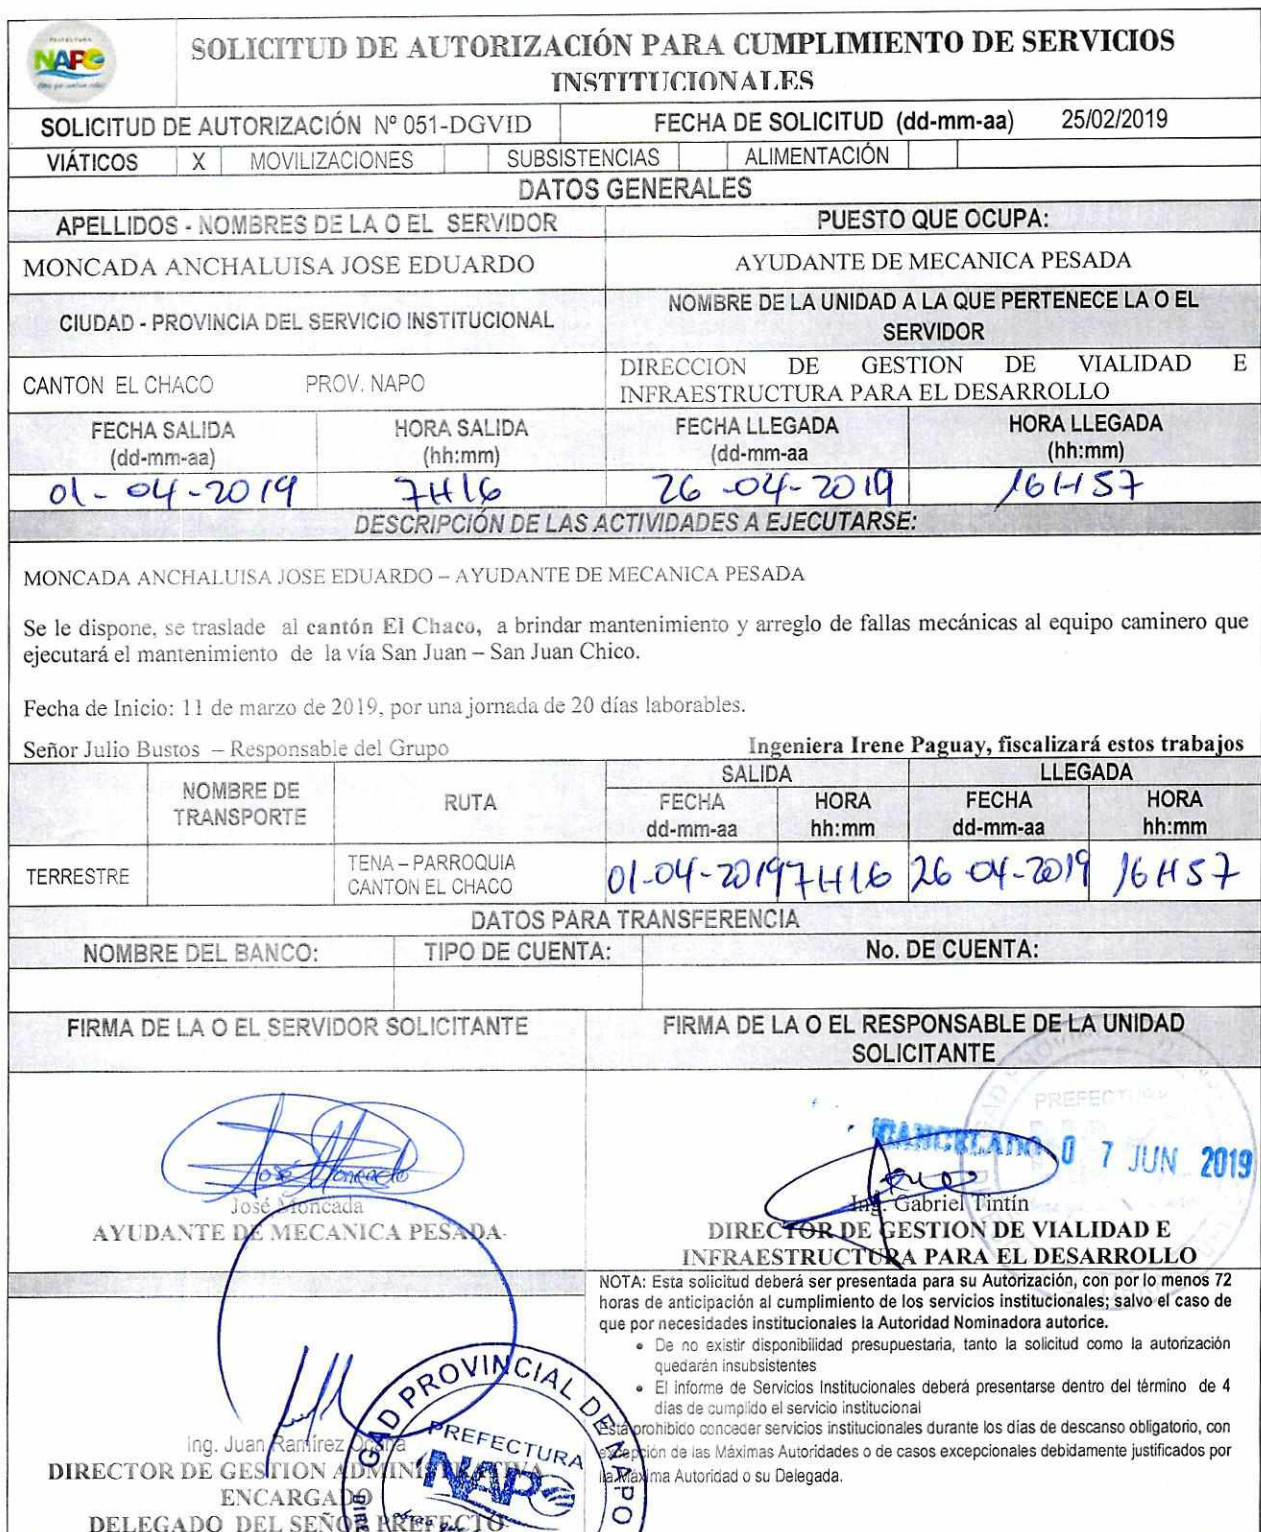 PREFECTURA
NAPO
SOLICITUD DE AUTORIZACIÓN PARA CUMPLIMIENTO DE SERVICIOS
INSTITUCIONALES
SOLICITUD DE AUTORIZACIÓN Nº 051-DGVID FECHA DE SOLICITUD (dd-mm-aa) 25/02/2019
VIÁTICOS X MOVILIZACIONES SUBSISTENCIAS ALIMENTACIÓN
DATOS GENERALES
APELLIDOS - NOMBRES DE LA O EL SERVIDOR PUESTO QUE OCUPA:
MONCADA ANCHALUISA JOSE EDUARDO AYUDANTE DE MECANICA PESADA
CIUDAD - PROVINCIA DEL SERVICIO INSTITUCIONAL NOMBRE DE LA UNIDAD A LA QUE PERTENECE LA O EL
SERVIDOR
CANTON EL CHACO PROV. NAPO DIRECCION DE GESTION DE VIALIDAD E
INFRAESTRUCTURA PARA EL DESARROLLO
FECHA SALIDA HORA SALIDA FECHA LLEGADA HORA LLEGADA
(dd-mm-aa) (hh:mm) (dd-mm-aa (hh:mm)
01-04-2019 7H16 26-04-2019 16H57
DESCRIPCIÓN DE LAS ACTIVIDADES A EJECUTARSE:
MONCADA ANCHALUISA JOSE EDUARDO – AYUDANTE DE MECANICA PESADA
Se le dispone, se traslade al cantón El Chaco, a brindar mantenimiento y arreglo de fallas mecánicas al equipo caminero que
ejecutará el mantenimiento de la vía San Juan – San Juan Chico.
Fecha de Inicio: 11 de marzo de 2019, por una jornada de 20 días laborables.
Señor Julio Bustos – Responsable del Grupo Ingeniera Irene Paguay, fiscalizará estos trabajos
SALIDA LLEGADA
NOMBRE DE
TRANSPORTE RUTA FECHA HORA FECHA HORA
dd-mm-aa hh:mm dd-mm-aa hh:mm
TERRESTRE TENA – PARROQUIA
CANTON EL CHACO 01-04-2019 7H16 26-04-2019 16H57
DATOS PARA TRANSFERENCIA
NOMBRE DEL BANCO: TIPO DE CUENTA: No. DE CUENTA:
FIRMA DE LA O EL SERVIDOR SOLICITANTE FIRMA DE LA O EL RESPONSABLE DE LA UNIDAD
SOLICITANTE
PREFECTURA
CANCELADO 0 7 JUN 2019
José Moncada
José Moncada
AYUDANTE DE MECANICA PESADA
Ing. Gabriel Tintín
DIRECTOR DE GESTION DE VIALIDAD E
INFRAESTRUCTURA PARA EL DESARROLLO
NOTA: Esta solicitud deberá ser presentada para su Autorización, con por lo menos 72
horas de anticipación al cumplimiento de los servicios institucionales; salvo el caso de
que por necesidades institucionales la Autoridad Nominadora autorice.
• De no existir disponibilidad presupuestaria, tanto la solicitud como la autorización
quedarán insubsistentes
• El informe de Servicios Institucionales deberá presentarse dentro del término de 4
días de cumplido el servicio institucional
Está prohibido conceder servicios institucionales durante los días de descanso obligatorio, con
excepción de las Máximas Autoridades o de casos excepcionales debidamente justificados por
la Máxima Autoridad o su Delegada.
Ing. Juan Ramírez Ocaña
DIRECTOR DE GESTION ADMINISTRATIVA
ENCARGADO
DELEGADO DEL SEÑOR PREFECTO
GAD PROVINCIAL DE NAPO
PREFECTURA
NAPO